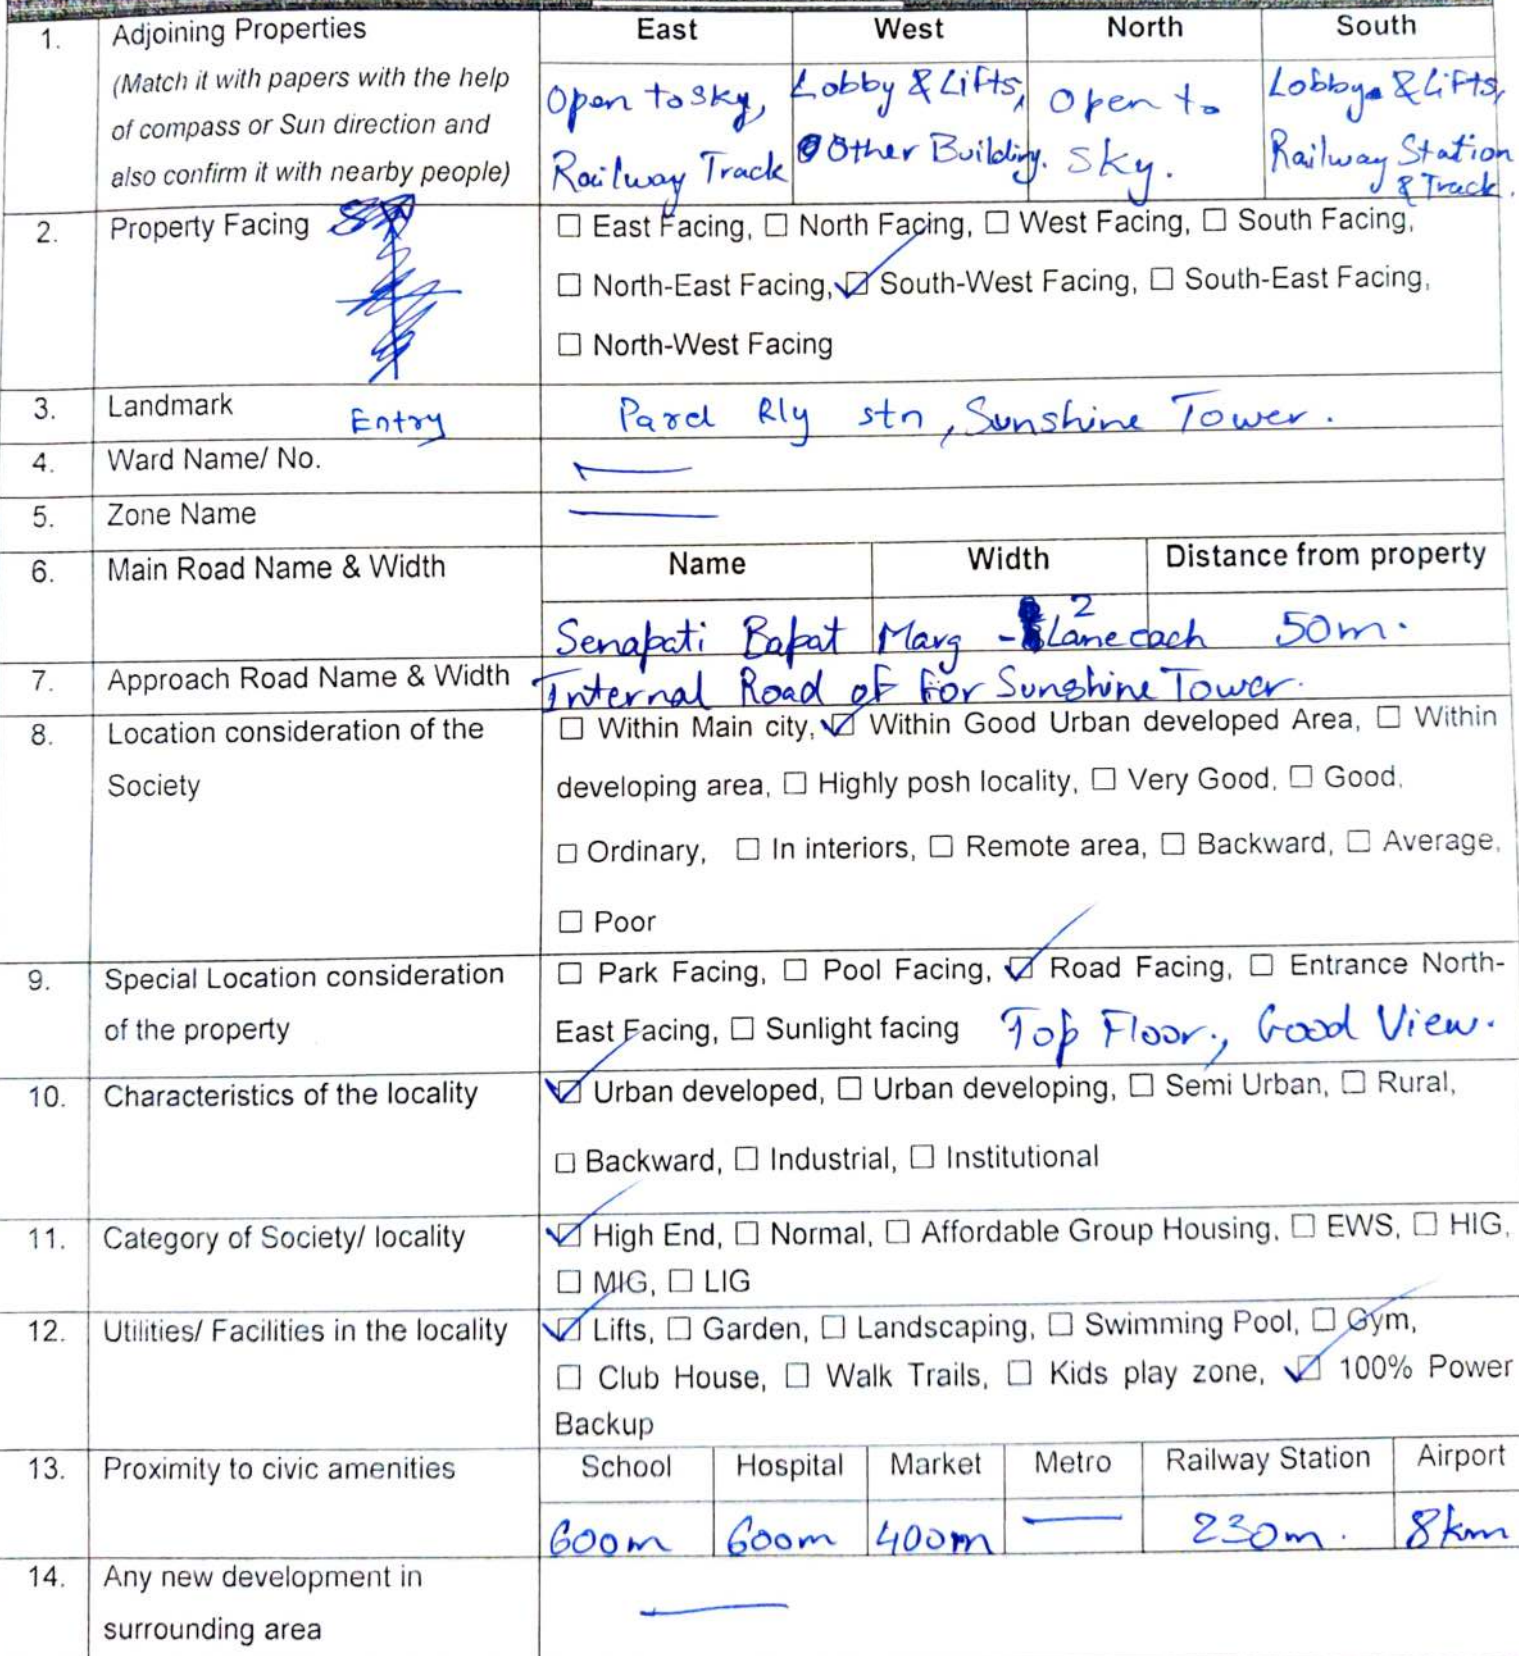 1. Adjoining Properties East West North South
(Match it with papers with the help
of compass or Sun direction and
also confirm it with nearby people)
Open to sky,
Railway Track
Lobby & Lifts,
Other Building.
Open to
Sky.
Lobby & Lifts,
Railway Station
& Track.
2. Property Facing ☐ East Facing, ☐ North Facing, ☐ West Facing, ☐ South Facing,
☐ North-East Facing, ☑ South-West Facing, ☐ South-East Facing,
☐ North-West Facing
3. Landmark Entry Parel Rly stn, Sunshine Tower.
4. Ward Name/ No. —
5. Zone Name —
6. Main Road Name & Width Name Width Distance from property
Senapati Bapat Marg - 2 Lane each 50m.
7. Approach Road Name & Width Internal Road of For Sunshine Tower.
8. Location consideration of the ☐ Within Main city, ☑ Within Good Urban developed Area, ☐ Within
Society developing area, ☐ Highly posh locality, ☐ Very Good, ☐ Good,
☐ Ordinary, ☐ In interiors, ☐ Remote area, ☐ Backward, ☐ Average,
☐ Poor
9. Special Location consideration ☐ Park Facing, ☐ Pool Facing, ☑ Road Facing, ☐ Entrance North-
of the property East Facing, ☐ Sunlight facing Top Floor., Good View.
10. Characteristics of the locality ☑ Urban developed, ☐ Urban developing, ☐ Semi Urban, ☐ Rural,
☐ Backward, ☐ Industrial, ☐ Institutional
11. Category of Society/ locality ☑ High End, ☐ Normal, ☐ Affordable Group Housing, ☐ EWS, ☐ HIG,
☐ MIG, ☐ LIG
12. Utilities/ Facilities in the locality ☑ Lifts, ☐ Garden, ☐ Landscaping, ☐ Swimming Pool, ☐ Gym,
☐ Club House, ☐ Walk Trails, ☐ Kids play zone, ☑ 100% Power
Backup
13. Proximity to civic amenities School Hospital Market Metro Railway Station Airport
600m 600m 400m — 230m. 8km
14. Any new development in —
surrounding area